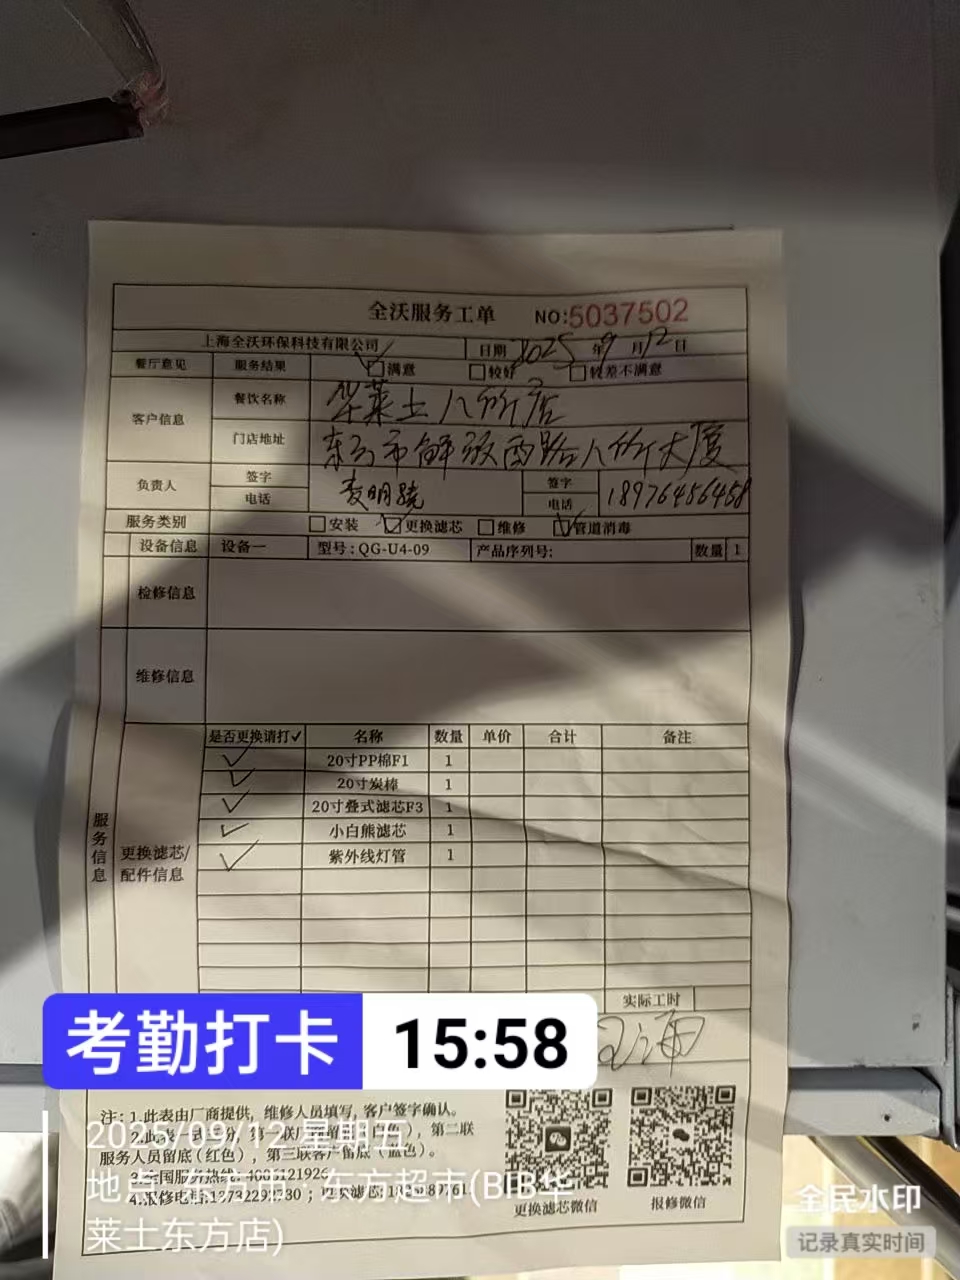 全沃服务工单 NO:5037502
上海全沃环保科技有限公司 日期 2025 年 9 月 12 日
餐厅意见 服务结果 满意 较好 较差不满意
客户信息 餐饮名称 华莱士八所店
门店地址 东方市解放西路八所大厦
负责人 签字 签字
电话 电话 18976456458
服务类别 安装 更换滤芯 维修 管道消毒
设备信息 设备一 型号:QG-U4-09 产品序列号: 数量 1
检修信息
维修信息
服务信息
更换滤芯/配件信息
是否更换请打✓ 名称 数量 单价 合计 备注
✓ 20寸PP棉F1 1
✓ 20寸炭棒 1
✓ 20寸叠式滤芯F3 1
✓ 小白熊滤芯 1
✓ 紫外线灯管 1
实际工时
考勤打卡 15:58
注:1.此表由厂商提供,维修人员填写,客户签字确认。
第二联
服务人员留底(红色),第三联客户留底(蓝色)。
4.报修电话:
更换滤芯微信 报修微信
2025/09/12 星期五
东方超市(BIB华
莱士东方店)
全民水印
记录真实时间